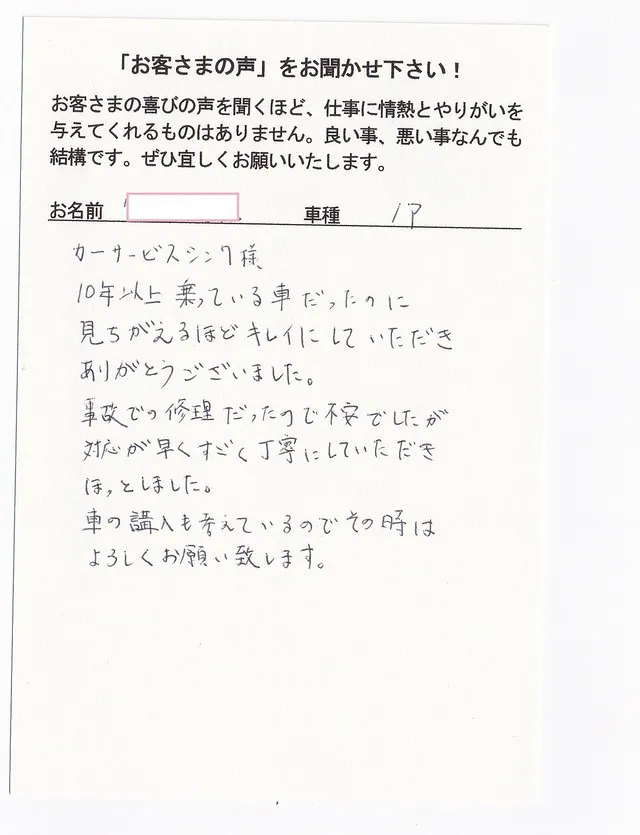 「お客さまの声」をお聞かせ下さい！
お客さまの喜びの声を聞くほど、仕事に情熱とやりがいを
与えてくれるものはありません。良い事、悪い事なんでも
結構です。ぜひ宜しくお願いいたします。
お名前 車種 ノア
カーサービスシンク様
10年以上乗っている車だったのに
見ちがえるほどキレイにしていただき
ありがとうございました。
事故での修理だったので不安でしたが
対応が早くすごく丁寧にしていただき
ほっとしました。
車の講入も考えているのでその時は
よろしくお願い致します。